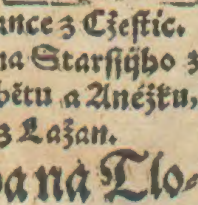 ance z Cžeſtic.
na Starſſýho z
bětu a Anéžku,
z Lažan.
pa na Tlo-